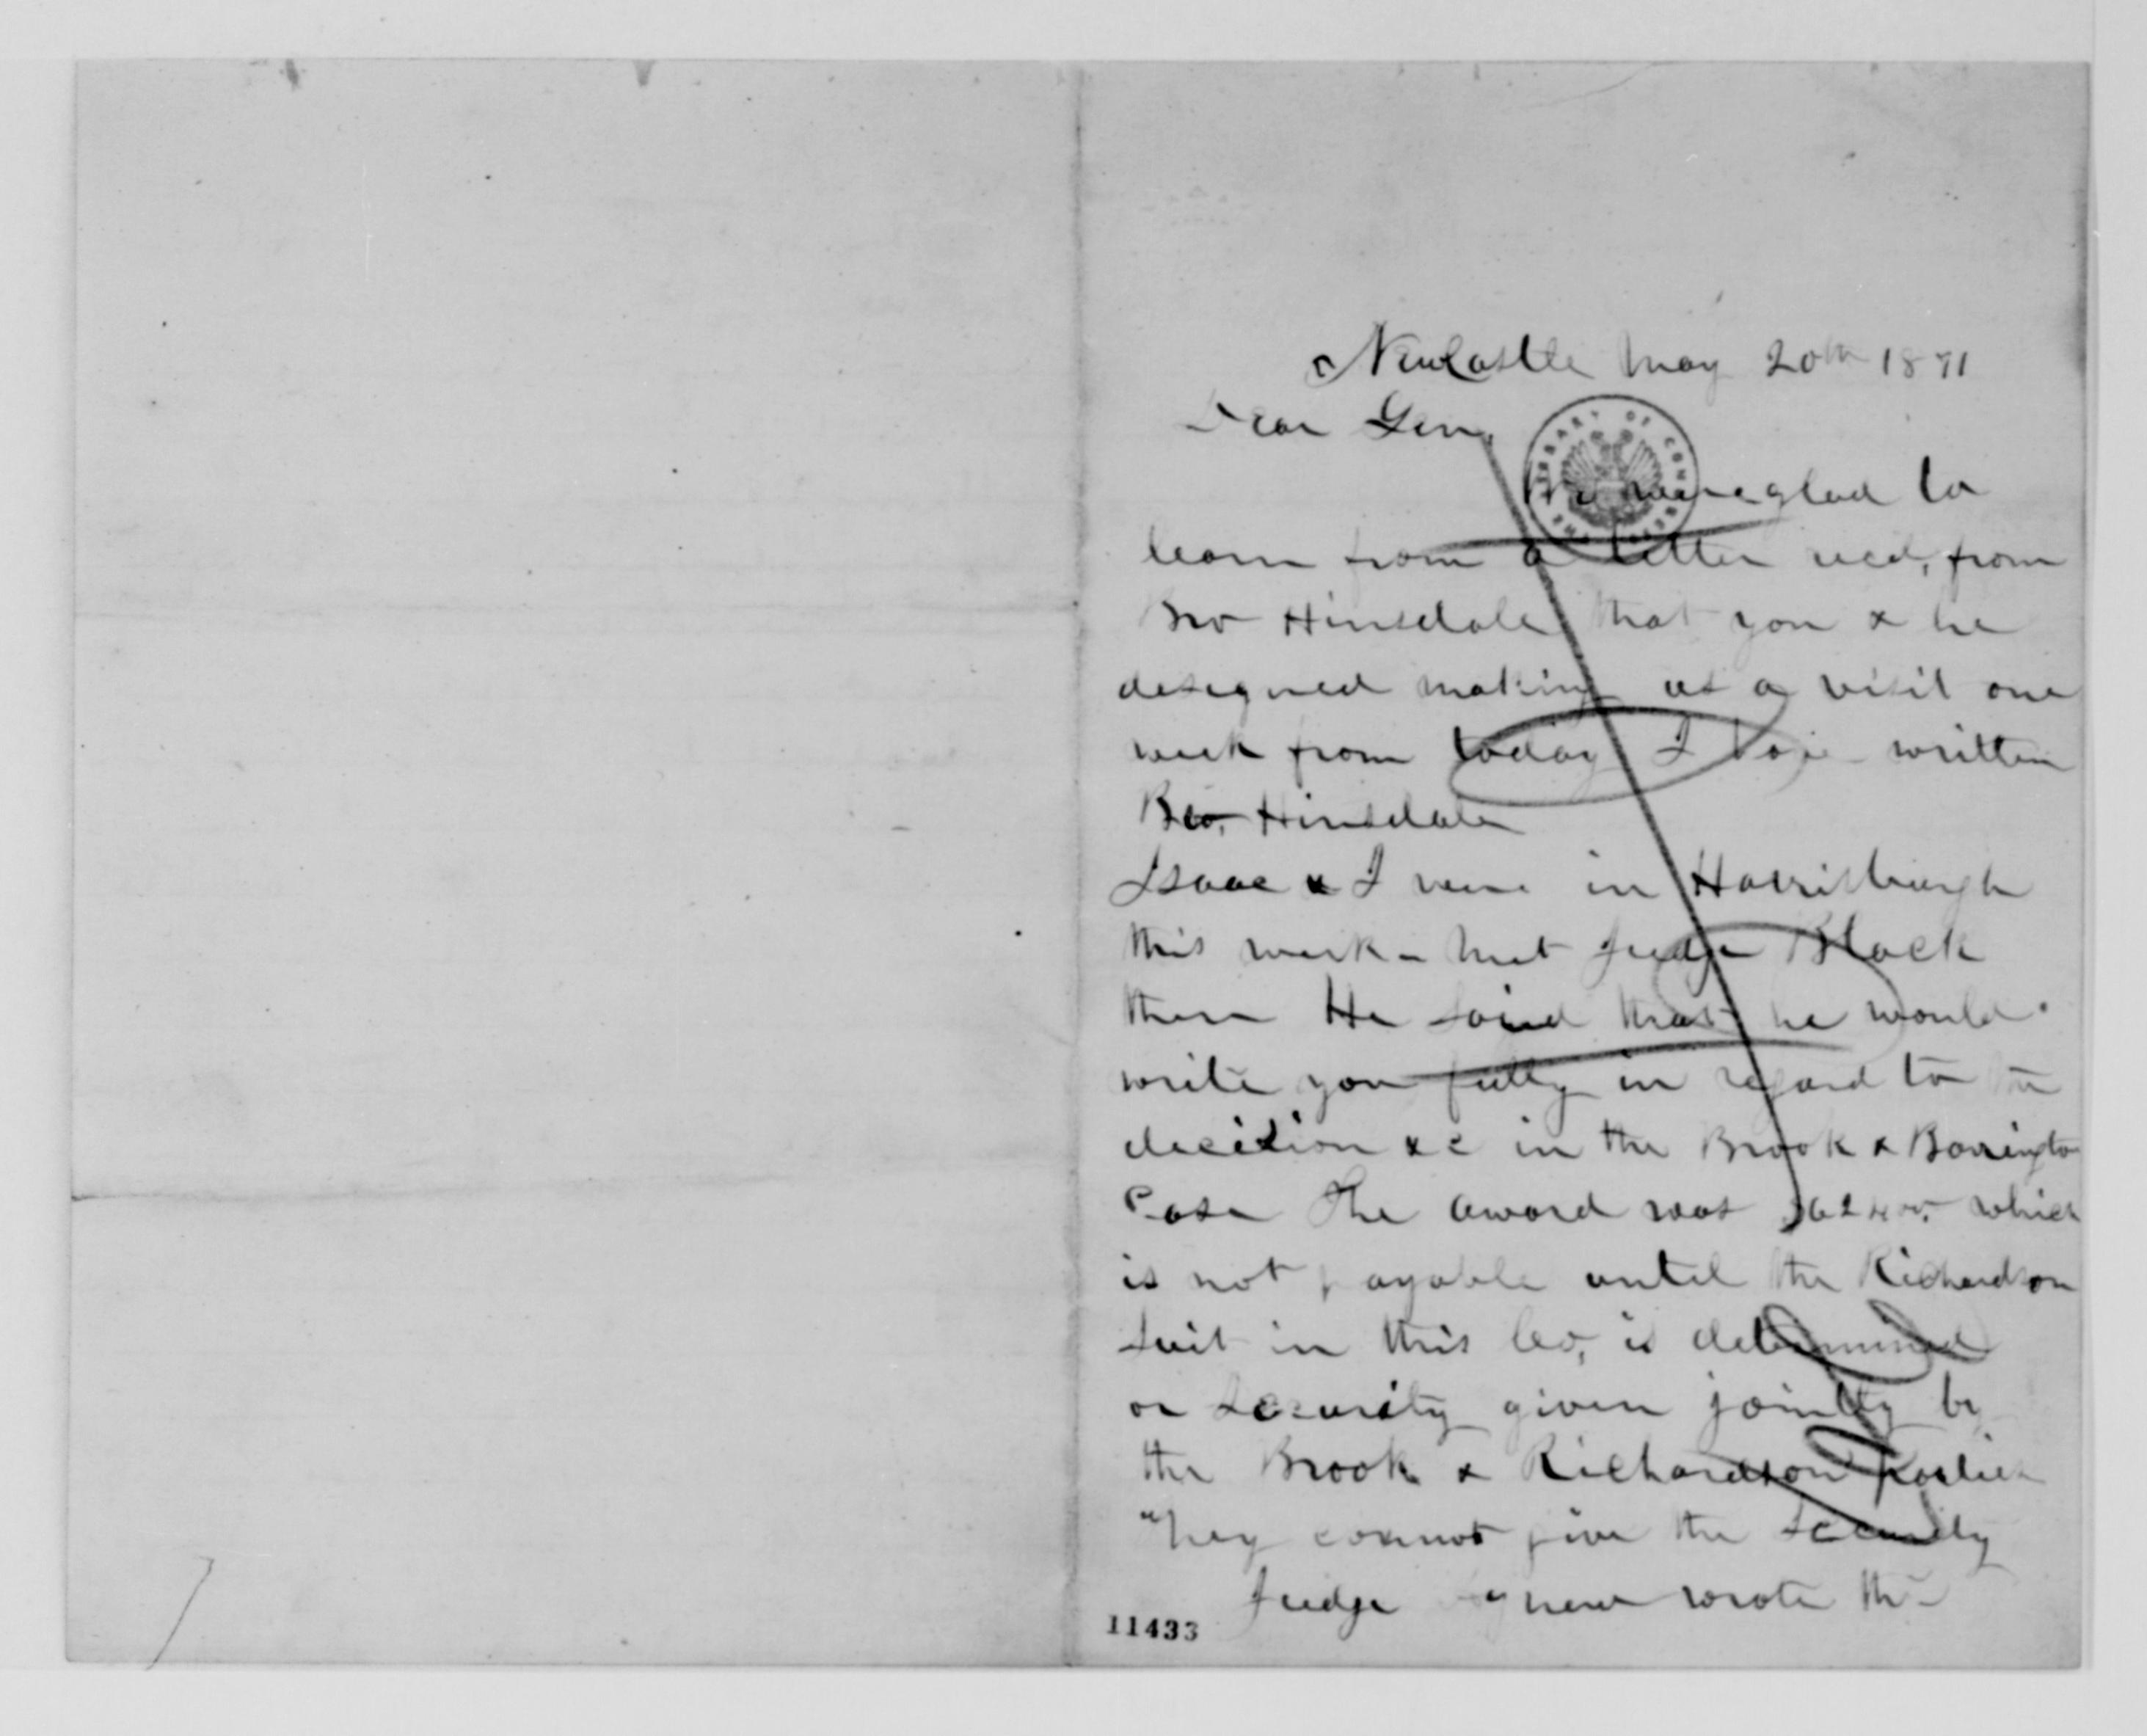 NewCastle May 20th 1871
Dear Gen,
THE LIBRARY OF CONGRESS
We were glad to
learn from a letter recd, from
Bro Hinsdale that you & he
designed making us a visit one
week from today I have written
Bro, Hinsdale
Isaac & I were in Harrisburgh
this week - met Judge Black
there He said that he would
write you fully in regard to the
decision &c in the Brook & Barrington
Case The award was which
is not payable until the Richardson
suit in this Co, is determined
or security given jointly by
the Brook & Richardson parties
They cannot give the security
Judge Agnew wrote the
11433